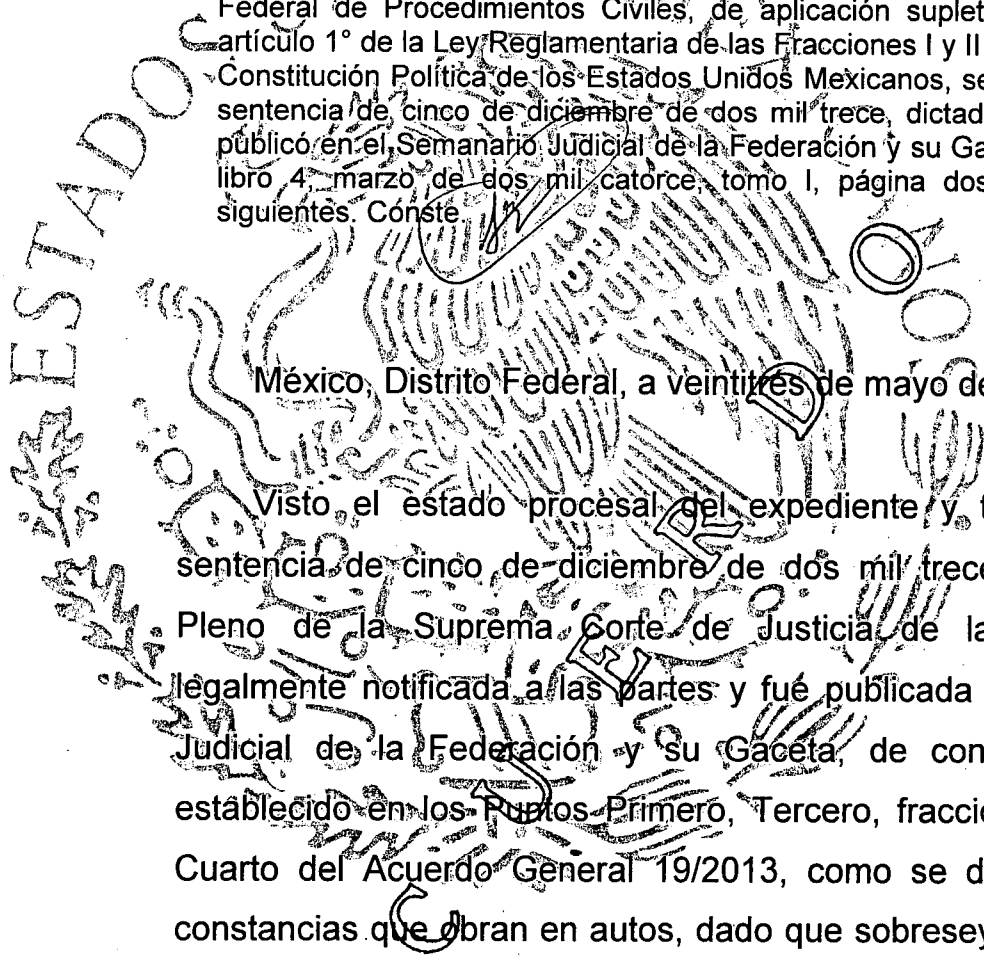 Federal de Procedimientos Civiles, de aplicación suplet
artículo 1° de la Ley Reglamentaria de las Fracciones I y II
Constitución Política de los Estados Unidos Mexicanos, se
sentencia de cinco de diciembre de dos mil trece, dictad
publicó en el Semanario Judicial de la Federación y su Ga
libro 4, marzo de dos mil catorce, tomo I, página dos
siguientes. Conste.
México, Distrito Federal, a veintitrés de mayo de
Visto el estado procesal del expediente y t
sentencia de cinco de diciembre de dos mil trece
Pleno de la Suprema Corte de Justicia de la
legalmente notificada a las partes y fué publicada
Judicial de la Federación y su Gaceta, de con
establecido en los Puntos Primero, Tercero, fracci
Cuarto del Acuerdo General 19/2013, como se d
constancias que obran en autos, dado que sobresey
ESTADOS
CUERDO